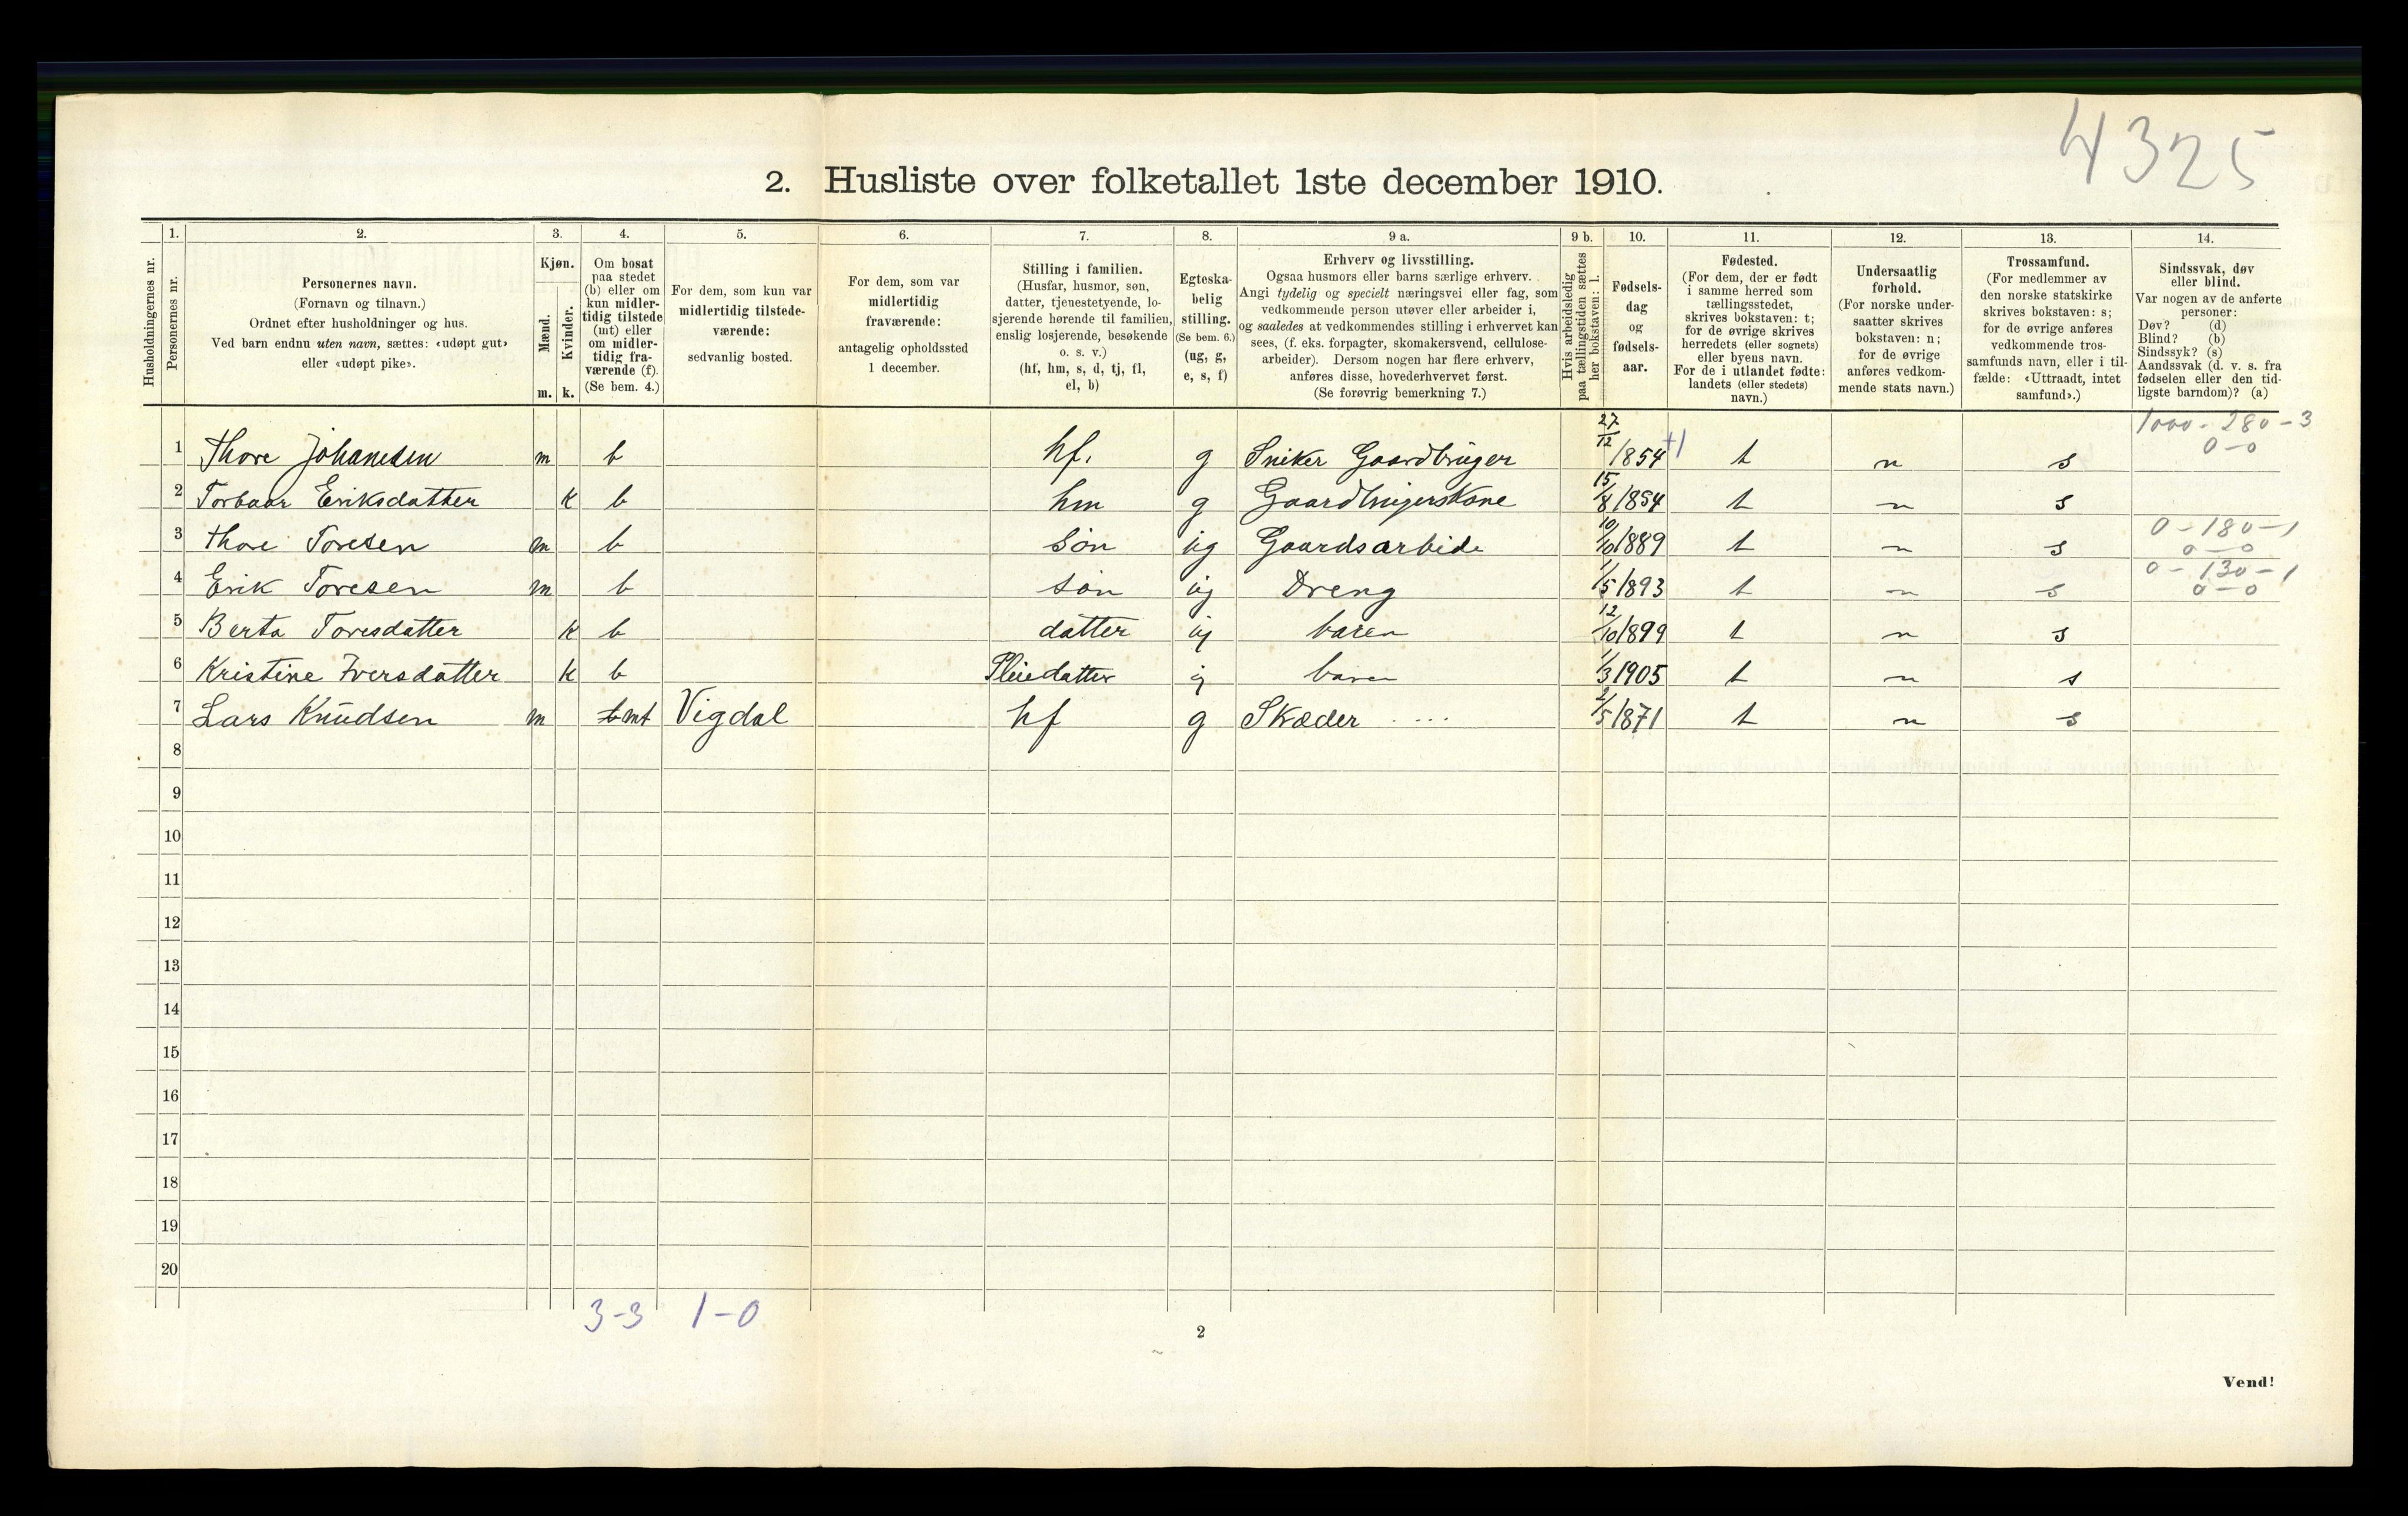 4325
2. Husliste over folketallet 1ste december 1910.
Husholdningernes nr.
1.
Personernes nr.
2.
Personernes navn.
(Fornavn og tilnavn.)
Ordnet efter husholdninger og hus.
Ved barn endnu uten navn, sættes: «udøpt gut»
eller «udøpt pike».
3.
Kjøn.
Mænd.
Kvinder.
m. k.
4.
Om bosat
paa stedet
(b) eller om
kun midler-
tidig tilstede
(mt) eller
om midler-
tidig fra-
værende (f).
(Se bem. 4.)
5.
For dem, som kun var
midlertidig tilstede-
værende:
sedvanlig bosted.
6.
For dem, som var
midlertidig
fraværende:
antagelig opholdssted
1 december.
7.
Stilling i familien.
(Husfar, husmor, søn,
datter, tjenestetyende, lo-
sjerende hørende til familien,
enslig losjerende, besøkende
o. s. v.)
(hf, hm, s, d, tj, fl,
el, b)
8.
Egteska-
belig
stilling.
(Se bem. 6.)
(ug, g,
e, s, f)
9 a.
Erhverv og livsstilling.
Ogsaa husmors eller barns særlige erhverv.
Angi tydelig og specielt næringsvei eller fag, som
vedkommende person utøver eller arbeider i,
og saaledes at vedkommendes stilling i erhvervet kan
sees, (f. eks. forpagter, skomakersvend, cellulose-
arbeider). Dersom nogen har flere erhverv,
anføres disse, hovederhvervet først.
(Se forøvrig bemerkning 7.)
9 b.
Hvis arbeidsledig
paa tællingstiden sættes
her bokstaven: l.
10.
Fødsels-
dag
og
fødsels-
aar.
11.
Fødested.
(For dem, der er født
i samme herred som
tællingsstedet,
skrives bokstaven: t;
for de øvrige skrives
herredets (eller sognets)
eller byens navn.
For de i utlandet fødte:
landets (eller stedets)
navn.)
12.
Undersaatlig
forhold.
(For norske under-
saatter skrives
bokstaven: n;
for de øvrige
anføres vedkom-
mende stats navn.)
13.
Trossamfund.
(For medlemmer av
den norske statskirke
skrives bokstaven: s;
for de øvrige anføres
vedkommende tros-
samfunds navn, eller i til-
fælde: «Uttraadt, intet
samfund».)
14.
Sindssvak, døv
eller blind.
Var nogen av de anførte
personer:
Døv? (d)
Blind? (b)
Sindssyk? (s)
Aandssvak (d. v. s. fra
fødselen eller den tid-
ligste barndom)? (a)
1 Thore Johanesen m b hf. g Sniker Gaardbruger 27/12 1854 +1 t n s 1000-280-3 0-0
2 Torbaar Eriksdatter k b hm g Gaardbrugerskone 15/8 1854 t n s
3 Thore Toresen m b søn ug Gaardsarbide 10/10 1889 t n s 0-180-1 0-0
4 Erik Toresen m b søn ug Dreng 1/5 1893 t n s 0-130-1 0-0
5 Berta Toresdatter k b datter ug baren 12/10 1899 t n s
6 Kristine Iversdatter k b Pleiedatter g baren 1/3 1905 t n s
7 Lars Knudsen m b mt Vigdal hf g Skæder 2/5 1871 t n s
8
9
10
11
12
13
14
15
16
17
18
19
20
3-3 1-0
2
Vend!